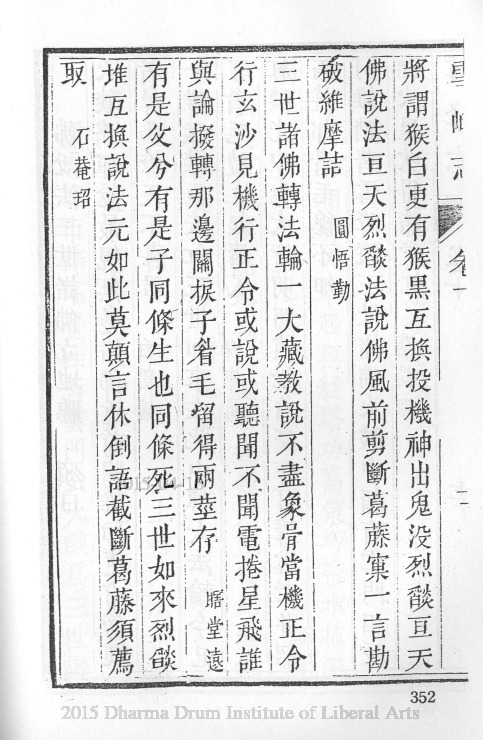 雪峰志 卷十
將謂猴白更有猴黑互換投機神出鬼没烈燄亘天
佛說法亘天烈燄法說佛風前剪斷葛藤窠一言勘
破維摩詰 圓悟勤
三世諸佛轉法輪一大藏教說不盡象骨當機正令
行玄沙見機行正令或說或聽聞不聞電捲星飛誰
與論撥轉那邊關捩子眉毛留得兩莖存 瞎堂遠
有是父兮有是子同條生也同條死三世如來烈燄
堆互換說法元如此莫顛言休倒語截斷葛藤須薦
取 石菴玿
352
2015 Dharma Drum Institute of Liberal Arts